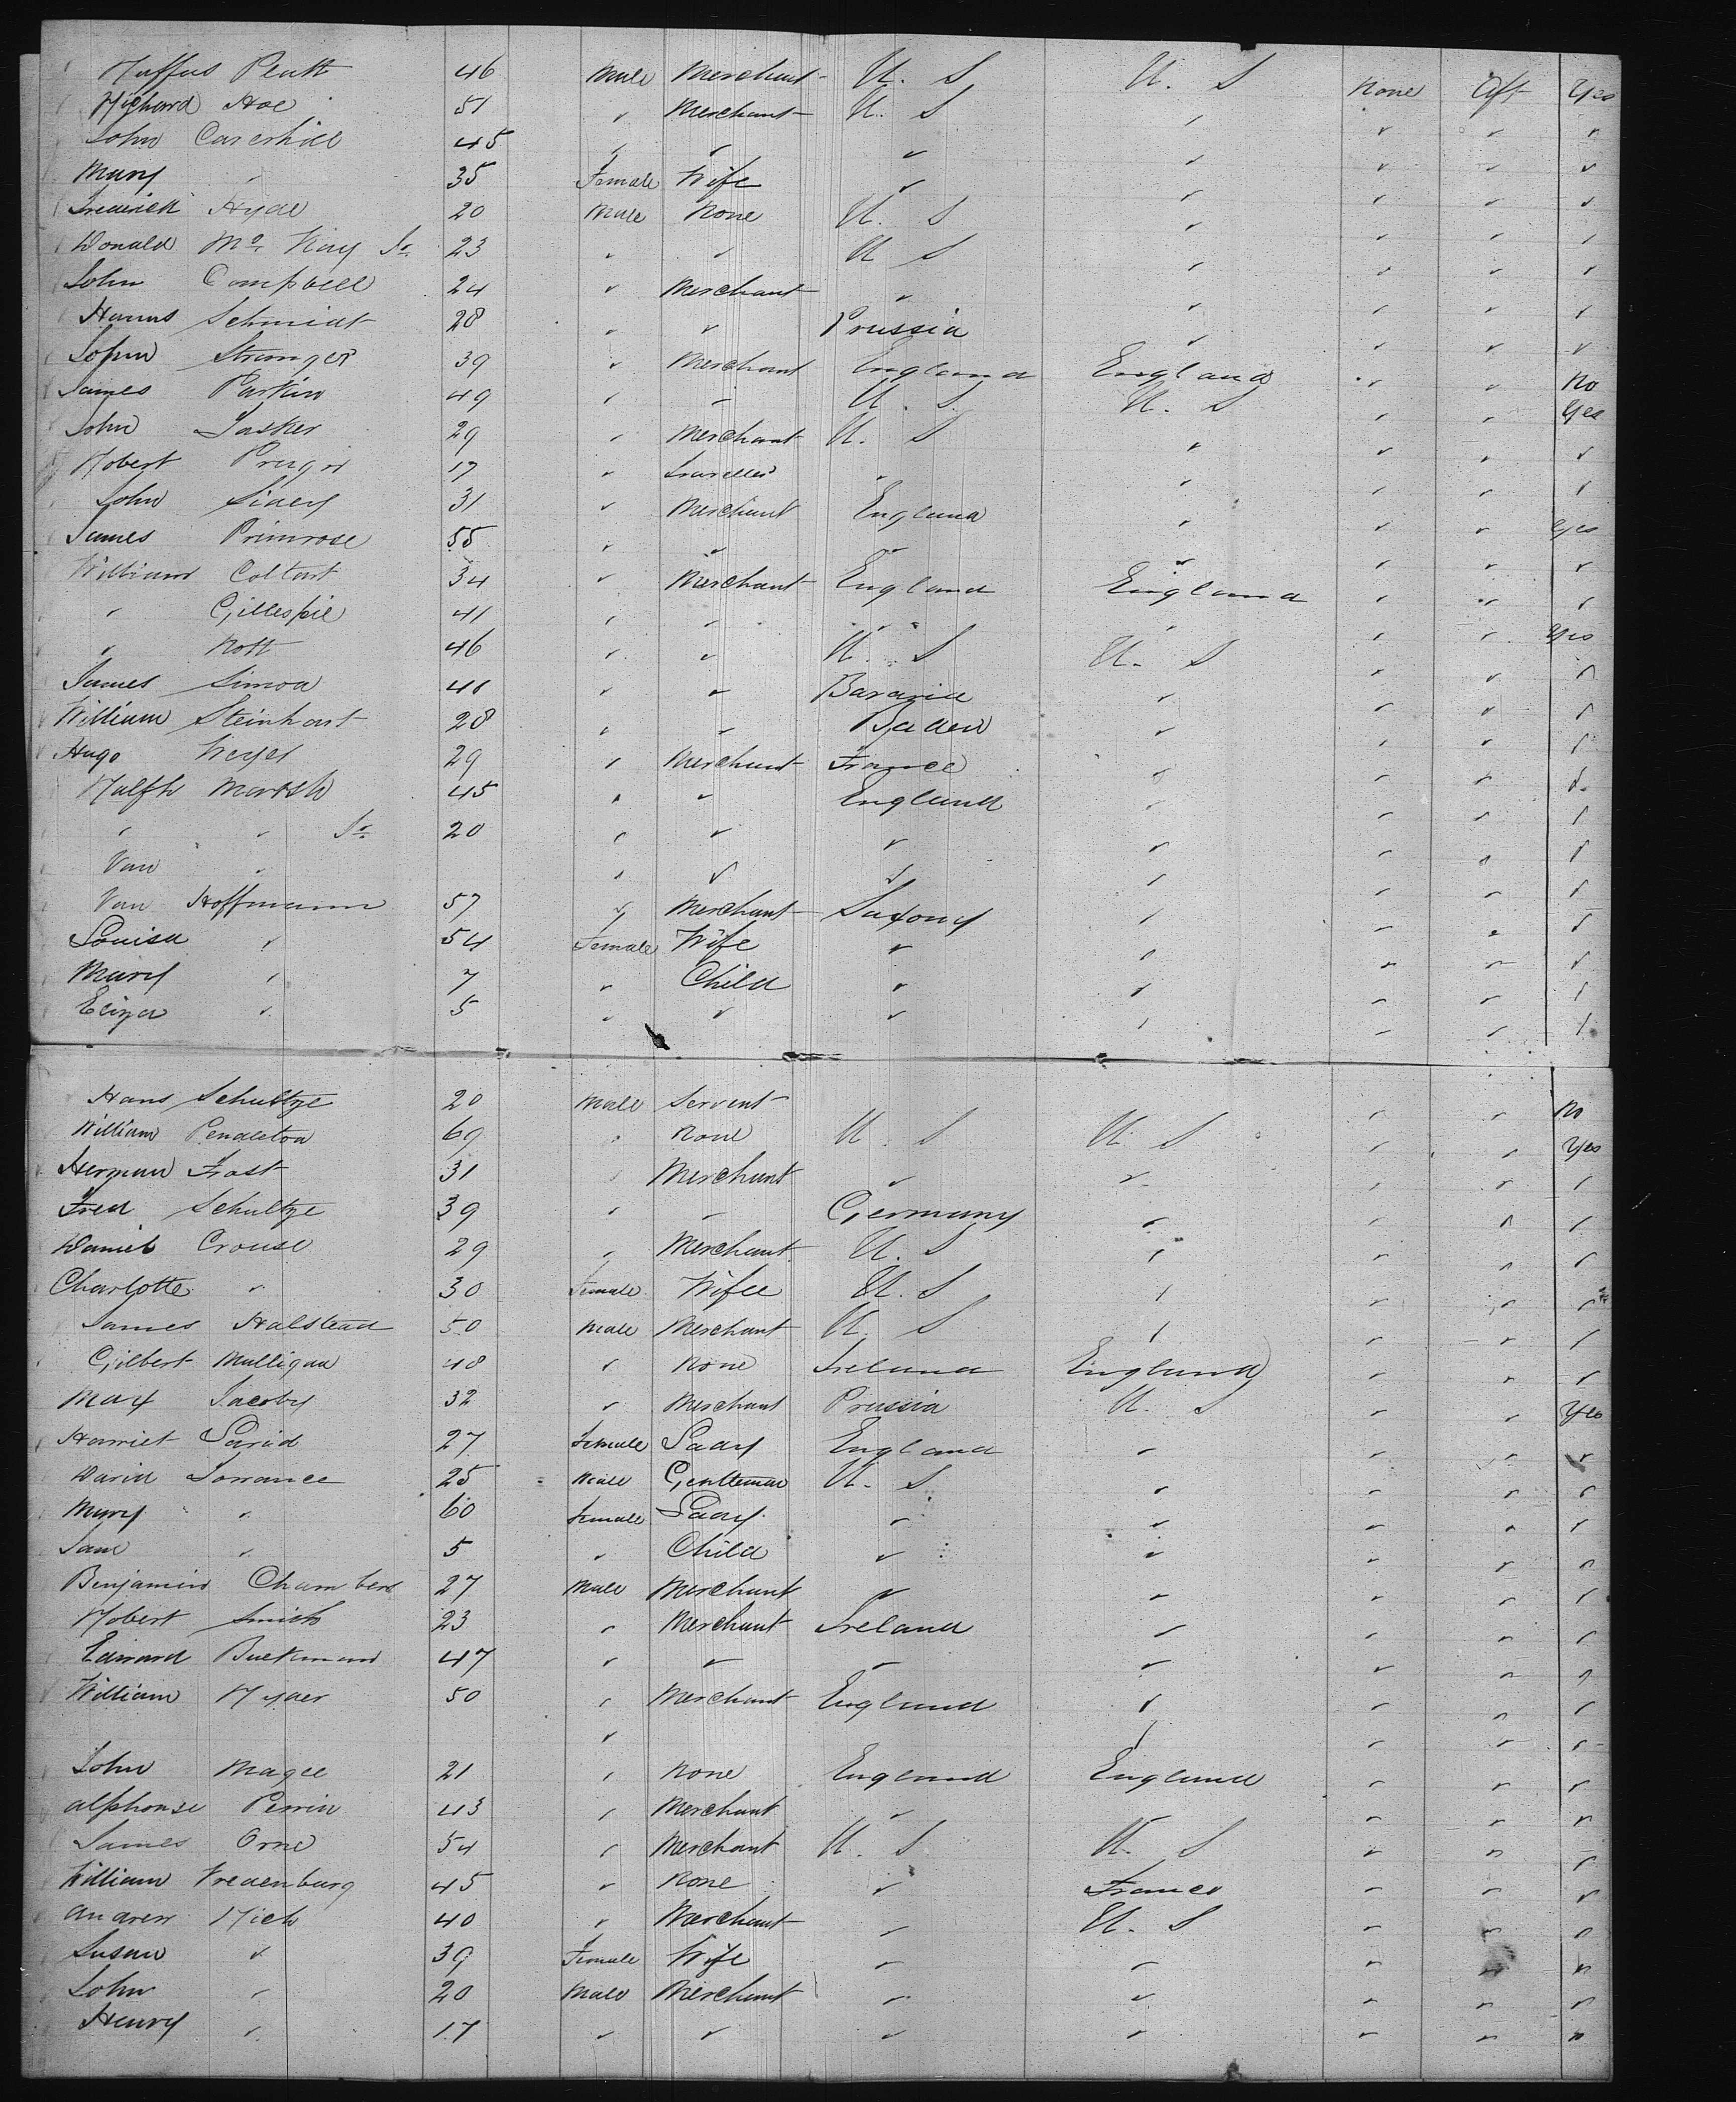 Ruffus Plutt 46 Male Merchant U. S U. S None Aft Yes
Richard Hoe 51 " Merchant U. S " " " "
John Caverhill 45 " " " " " " "
Mary " 35 Female Wife " " " " "
Frederick Hyde 20 Male None U. S " " " "
Donald Mc Kay Jr 23 " " U S " " " "
John Campbell 24 " Merchant " " " " "
Hanns Schmidt 28 " " Prussia " " " "
John Stranger 39 " Merchant England England " " No
James Parkin 49 " " U. S. U. S " " Yes
John Tasker 29 " Merchant U. S " " " "
Robert 17 " Traveller " " " " "
John Sidey 31 " Merchant England " " " Yes
James Primrose 55 " " " " " " "
William Coltart 34 " Merchant England England " " "
" Gillespie 41 " " " " " " Yes
" Nott 46 " " U. S U. S " " "
James Simon 41 " " Bavaria " " " "
William Steinhart 28 " " Baden " " " "
Hugo Weyel 29 " Merchant France " " " "
Ralph Marsh 45 " " England " " " "
" " Jr 20 " " " " " " "
Van " " " " " " " "
Van Hoffmann 57 " Merchant Saxony " " " "
Louisa " 54 Female Wife " " " " "
Mary " 7 " Child " " " " "
Eliza " 5 " " " " " " "
Hans Schultze 20 Male Servent " " No
William Pendleton 69 " None U. S U S " " Yes
Herman Frost 31 " Merchant " " " " "
Fred Schultze 39 " " Germany " " " "
Daniel Crouse 29 " Merchant U. S " " " "
Charlotte " 30 Female Wife U. S " " " "
James Halstead 50 Male Merchant U. S " " " "
Gilbert Mulligan 48 " None Ireland England " " "
Max Jacoby 32 " Merchant Prussia U. S " " Yes
Harriet 27 Female Lady England " " " "
David Torrance 25 Male Gentleman U. S. " " " "
Mary " 60 Female Lady " " " " "
Jane " 5 " Child " " " " "
Benjamin Chambers 27 Male Merchant " " " " "
Robert Smith 23 " Merchant Ireland " " " "
Edward Buckman 47 " " " " " " "
William Ryder 50 " Merchant England " " " "
" " " " "
John Magee 21 " None England England " " "
Alphonse Perrin 43 " Merchant " " " "
James Orne 54 " Merchant U. S U. S " " "
William Vredenburg 45 " None " France " " "
Andrew Rich 40 " Merchant " U. S " " "
Susan " 39 Female Wife " " " " "
John " 20 Male Merchant " " " " "
Henry " 17 " " " " " " "